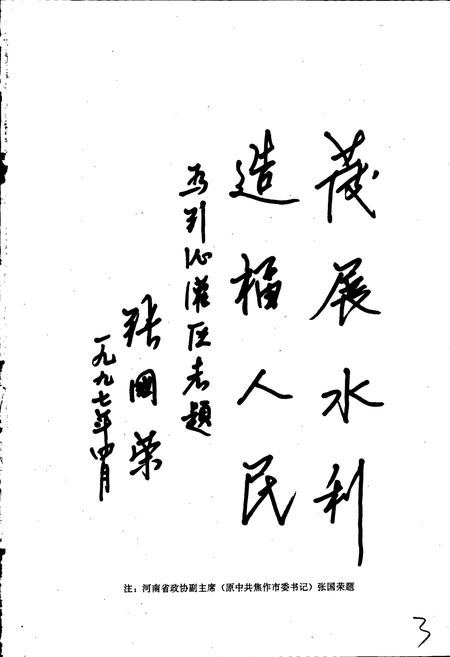 发展水利
造福人民
为引沁灌区志题
张国荣
一九九七年四月
注：河南省政协副主席（原中共焦作市委书记）张国荣题
3